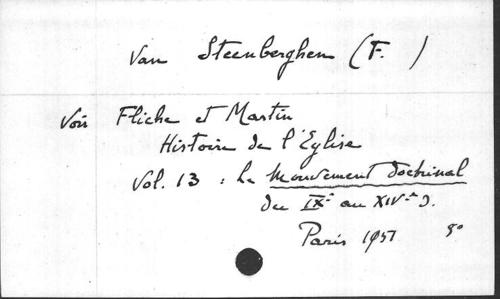 Van Steenberghen (F. )
Voir Fliche et Martin
Histoire de l'Eglise
Vol. 13 : Le Mouvement doctrinal
du IXe au XIVe S.
Paris 1951 5°